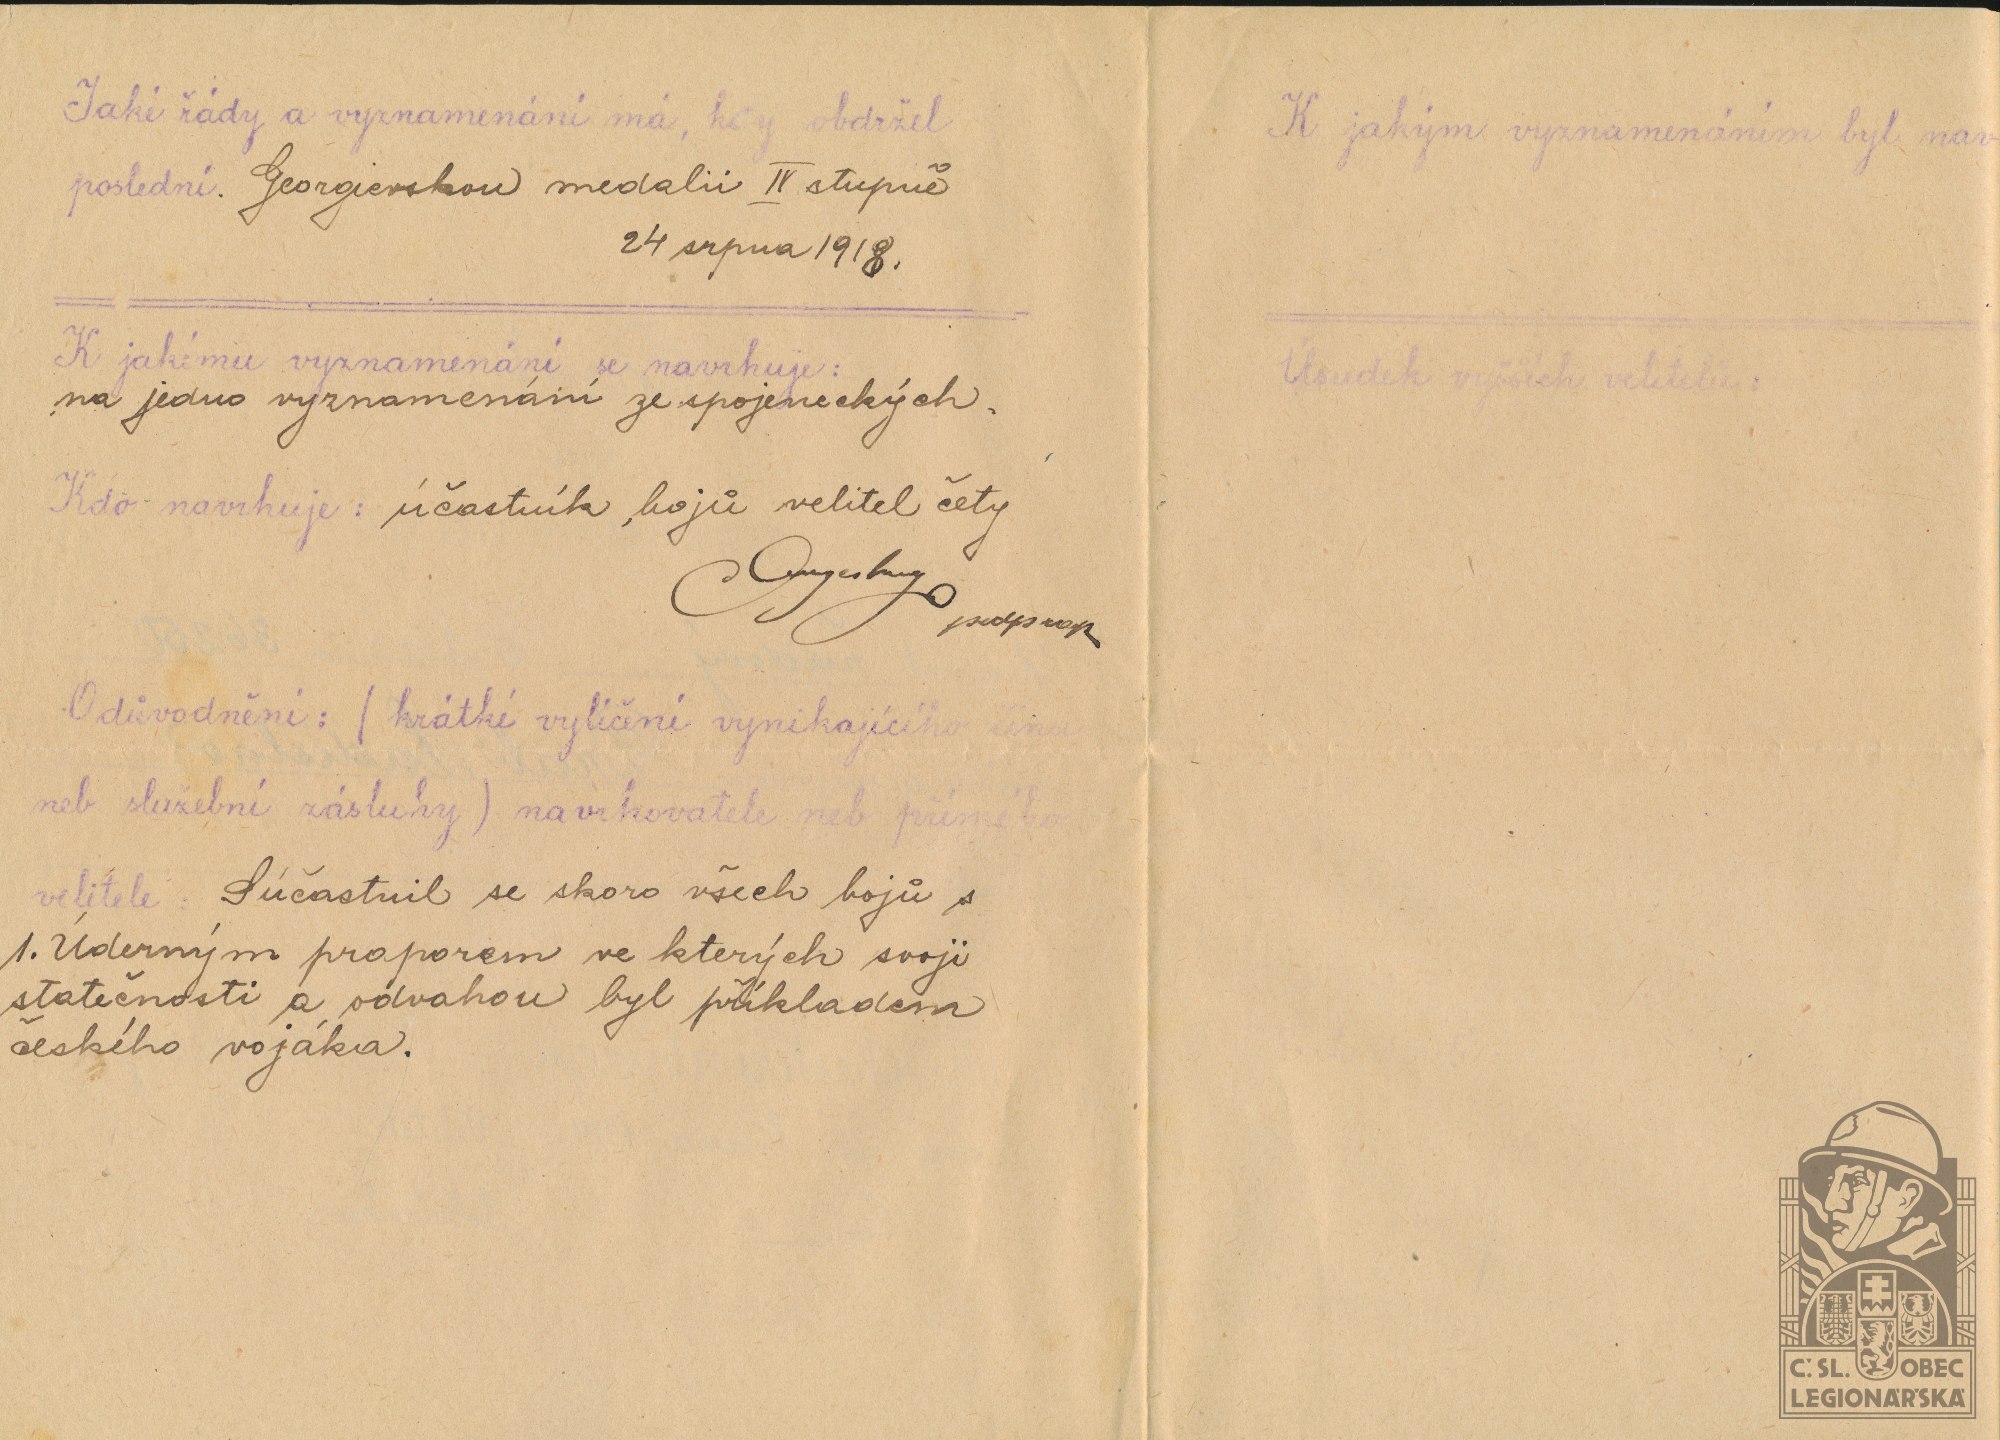 Jaké řády a vyznamenání má, kdy obdržel
poslední. Georgievskou medalii IV stupně
24 srpna 1918.
K jakému vyznamenání se navrhuje:
na jedno vyznamenání ze spojeneckých.
Kdo navrhuje: účastník bojů velitel čety
podprap
Odůvodnění: ( krátké vylíčení vynikajícího činu
neb služební zásluhy ) navrhovatele neb přímého
velitele: Súčastnil se skoro všech bojů s
1. Úderným praporem ve kterých svoji
statečnosti a odvahou byl příkladem
českého vojáka.
K jakým vyznamenáním byl nav
Úsudek vyšších velitelů:
Č. SL. OBEC
LEGIONÁŘSKÁ